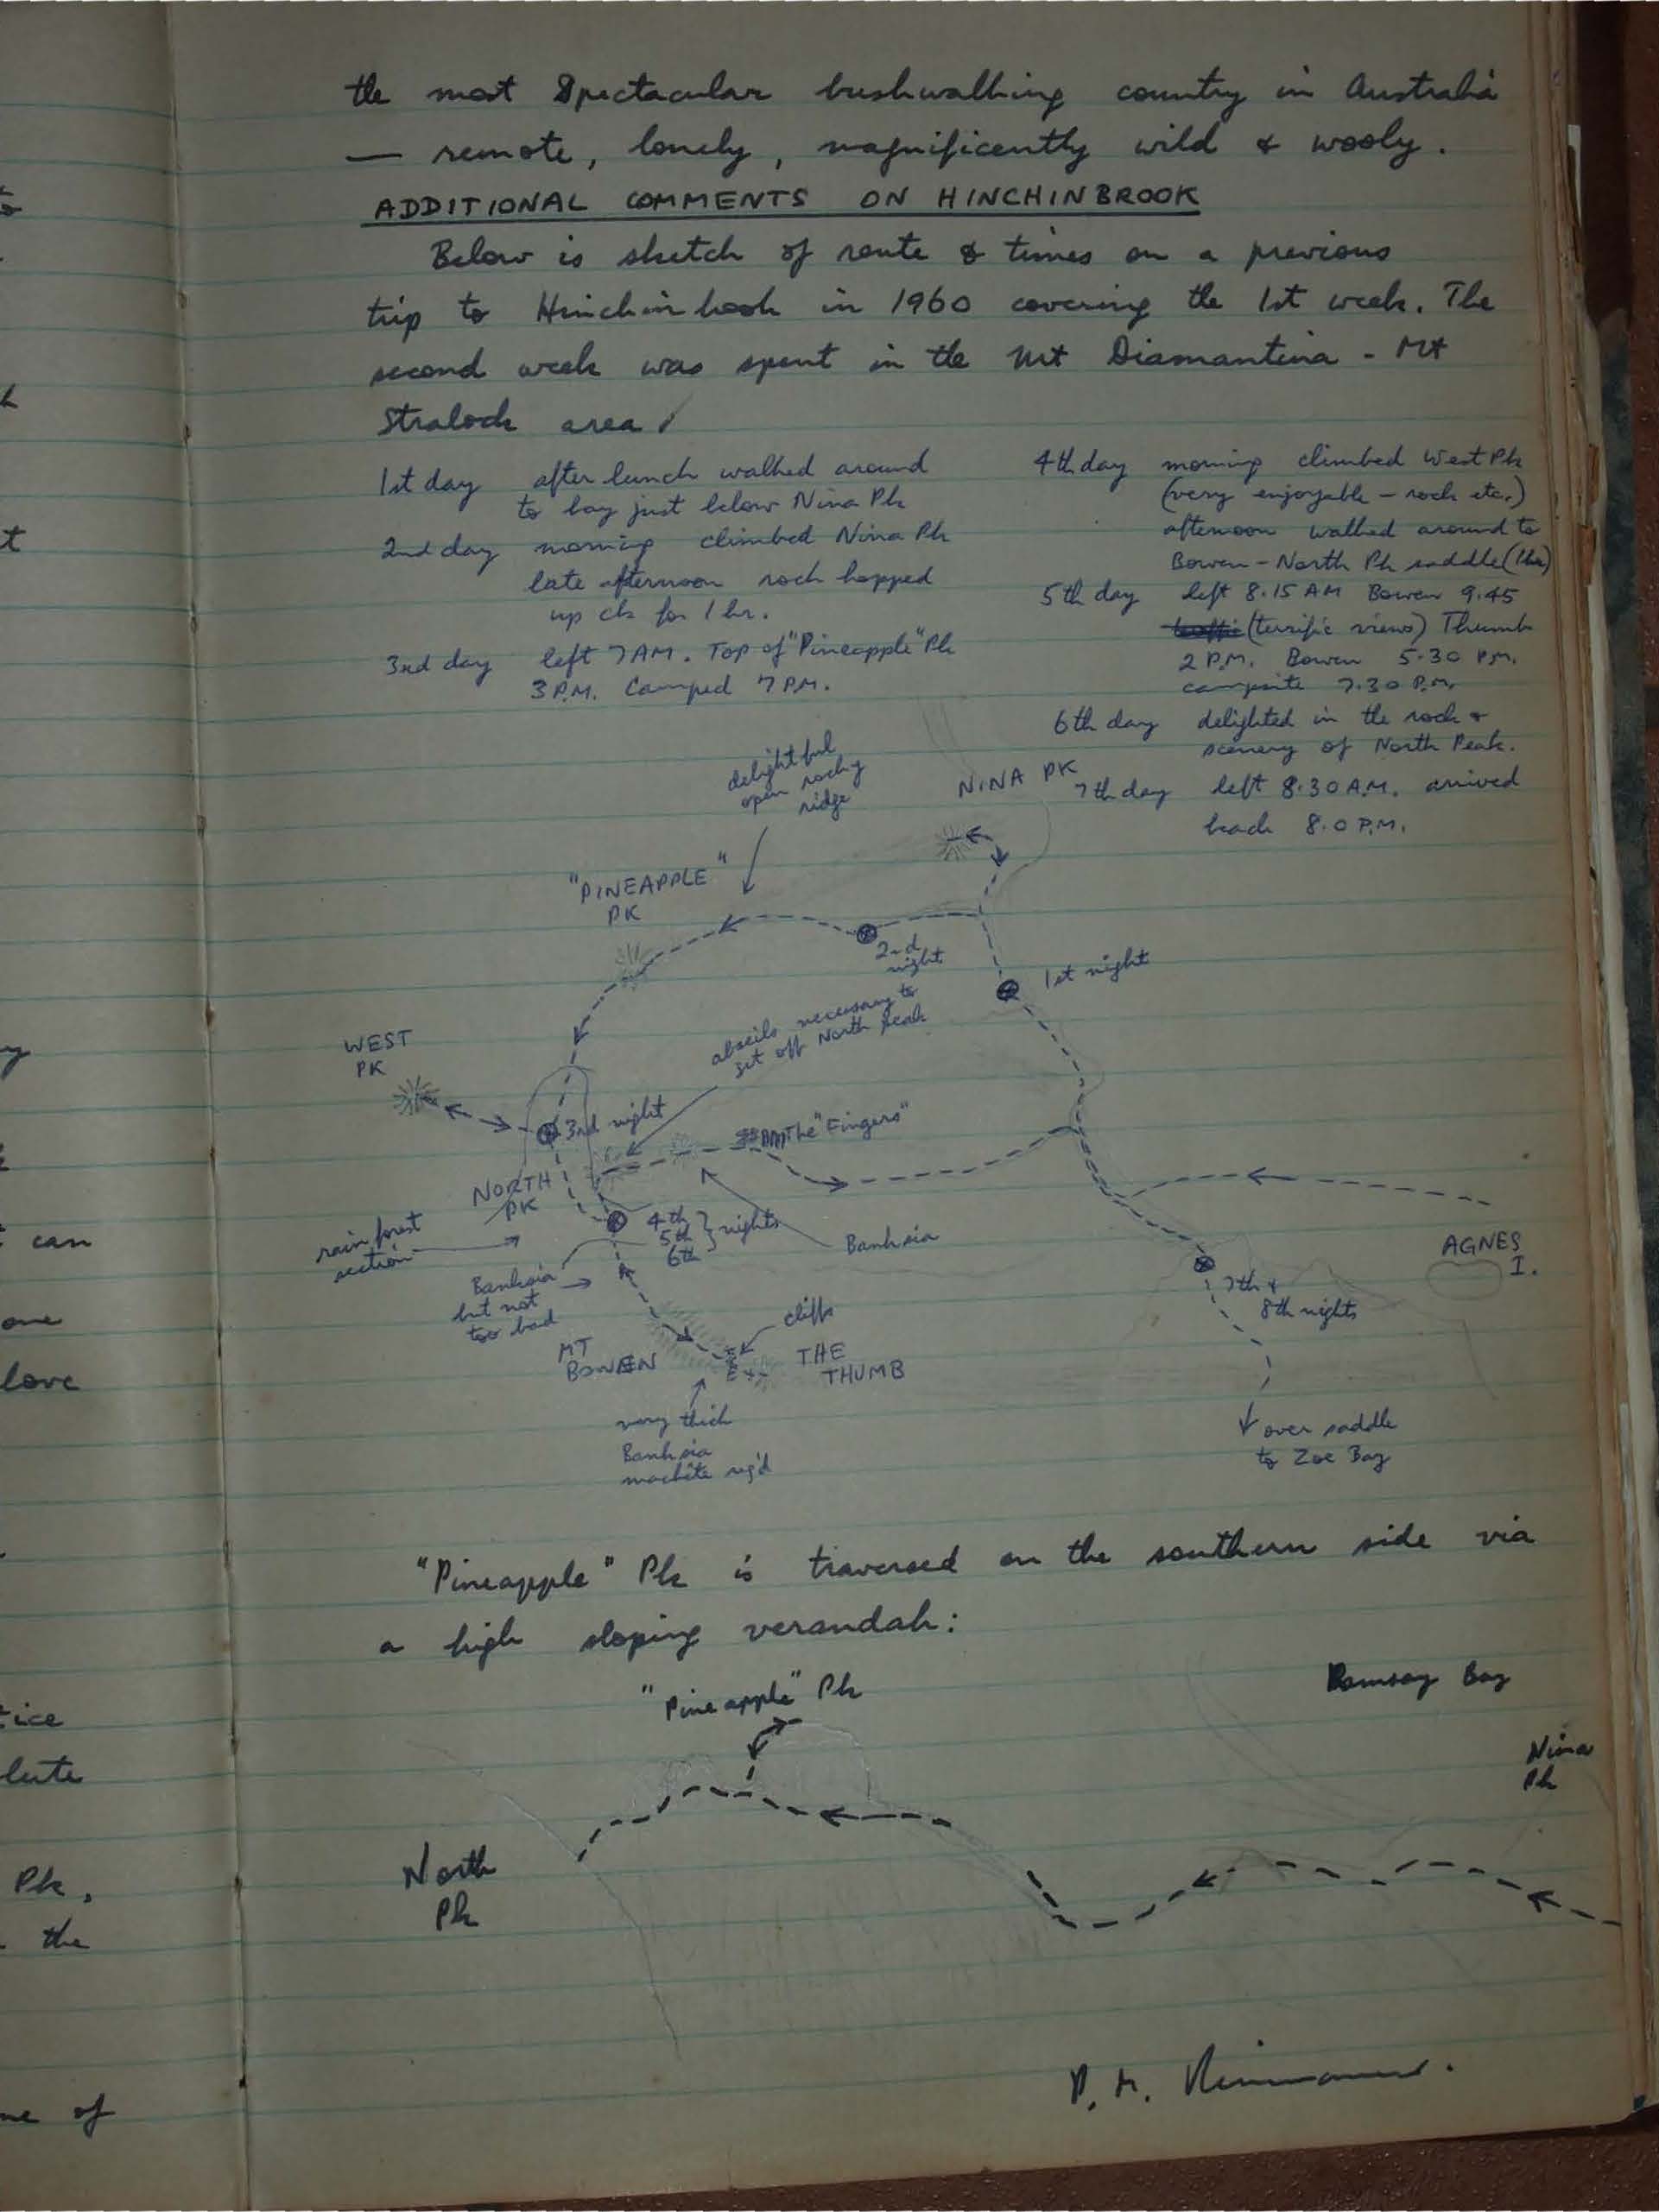 the most Spectacular bushwalking country in Australia
— remote, lonely, magnificently wild & wooly.
ADDITIONAL COMMENTS ON HINCHINBROOK
Below is sketch of route & times on a previous
trip to Hinchinbrook in 1960 covering the 1st week. The
second week was spent in the Mt Diamantina - Mt
Straloch area.
1st day after lunch walked around
to bay just below Nina Pk
2nd day morning climbed Nina Pk
late afternoon rock hopped
up ck for 1 hr.
3rd day left 7AM. Top of "Pineapple" Pk
3 P.M. Camped 7 P.M.
4th day morning climbed West Pk
(very enjoyable - rock etc.)
afternoon walked around to
Bowen - North Pk saddle (1hr)
5th day left 8.15 AM Bowen 9.45
(terrific views) Thumb
2 P.M. Bowen 5.30 P.M.
campsite 7.30 P.M.
6th day delighted in the rock &
scenery of North Peak.
7th day left 8.30 A.M. arrived
beach 8.0 P.M.
delightful
open rocky
ridge
NINA PK
"PINEAPPLE"
PK
2nd
night
1st night
abseils necessary to
get off North Peak
WEST
PK
3rd night
The "Fingers"
NORTH
PK
rain forest
section
4th
5th
6th
} nights
Banksia
Banksia
but not
too bad
AGNES
I.
7th &
8th nights
cliffs
MT
BOWEN
THE
THUMB
very thick
Banksia
machete req'd
over saddle
to Zoe Bay
"Pineapple" Pk is traversed on the southern side via
a high sloping verandah:
"Pineapple" Pk
Ramsay Bay
Nina
Pk
North
Pk
can
one
love
ice
lute
Pk,
the
of